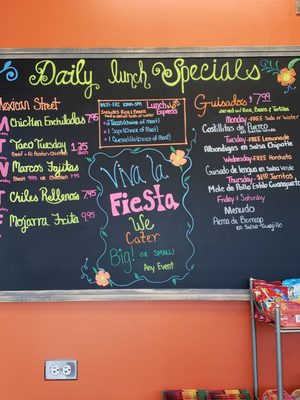 Daily lunch Specials
Mexican Street
M
Chicken Enchiladas 7.95
Taco Tuesday 1.25
Beef or Al Pastor
Marcos Fajitas
N
Chiles Rellenos 7.95
Mojarra Frita 9.95
Mon-Fri 10am-3pm
Lunch Express
Includes Rice and Beans
and a 20oz Soda or Water
2 Tacos (choice of Meat)
1 Sope (choice of Meat)
1 Quesadilla (choice of Meat)
Viva la
Fiesta
We
Cater
Big! or small!
Any Event
Guisados $7.99
Served w/ Rice, Beans & Tortillas
Monday - FREE Soda or Water
Castillitas de Puerco
Tuesday - FREE Lemonade
Albondigas en Salsa Chipotle
Wednesday - FREE Horchata
Guisado de lengua en salsa Verde
Thursday - Jarritos
Mole de Pollo Estilo Guanajuato
Friday & Saturday
Menudo
Pierna de Borrego
en Salsa Guajillo